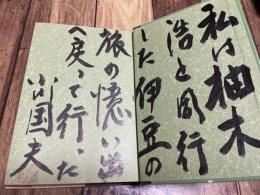 私は柚木
浩と同行
した伊豆の
旅の憶い出
へ戻って行った
小国夫